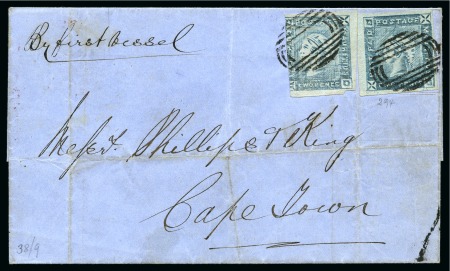 By first vessel
POSTAGE
TWO PENCE
294
Messrs. Phillips & King
Cape Town
38/9